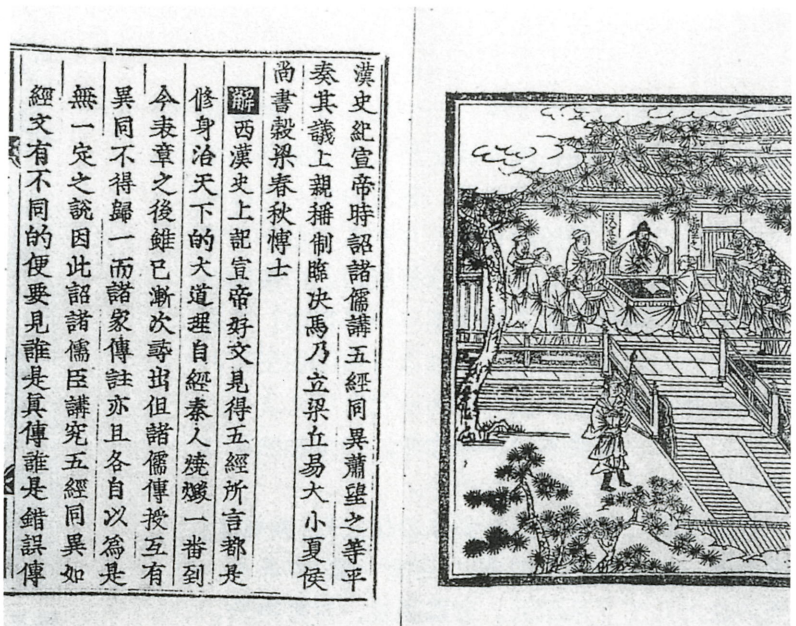 漢史紀宣帝時詔諸儒講五經同異蕭望之等平
奏其議上親稱制臨决焉乃立梁丘易大小夏侯
尚書穀梁春秋博士
解西漢史上記宣帝好文見得五經所言都是
修身治天下的大道理自經秦人燒燬一番到
今表章之後雖已漸次尋出但諸儒傳授互有
異同不得歸一而諸家傳註亦且各自以為是
無一定之說因此詔諸儒臣講究五經同異如
經文有不同的便要見誰是真傳誰是錯誤傳